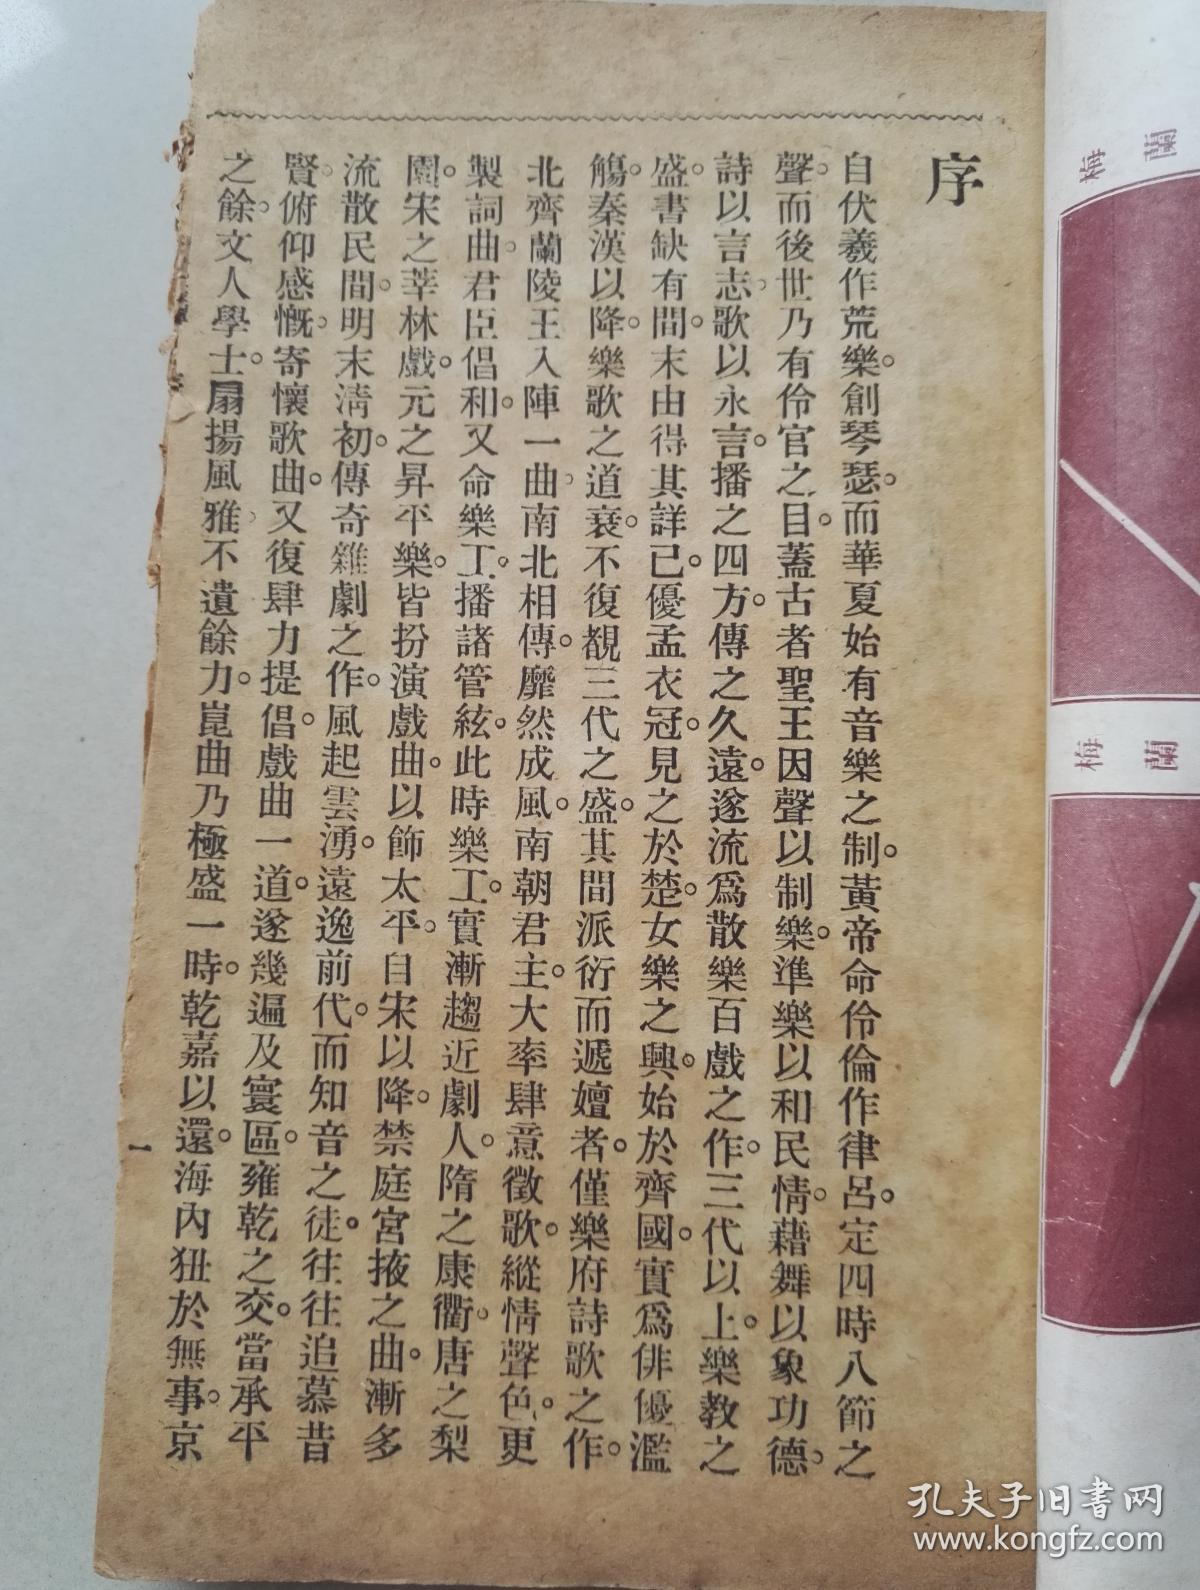 序
自伏羲作荒樂。創琴瑟。而華夏始有音樂之制。黃帝命伶倫作律呂。定四時八節之
聲。而後世乃有伶官之目。蓋古者聖王因聲以制樂。準樂以和民情。藉舞以象功德。
詩以言志。歌以永言。播之四方。傳之久遠。遂流爲散樂百戲之作。三代以上。樂敎之
盛。書缺有間。末由得其詳已。優孟衣冠。見之於楚。女樂之興。始於齊國。實爲俳優濫
觴。秦漢以降。樂歌之道衰。不復覩三代之盛。其間派衍而遞嬗者。僅樂府詩歌之作。
北齊蘭陵王入陣一曲。南北相傳。靡然成風。南朝君主。大率肆意徵歌。縱情聲色。更
製詞曲。君臣倡和。又命樂工。播諸管絃。此時樂工。實漸趨近劇人。隋之康衢。唐之梨
園。宋之莘林戲。元之昇平樂。皆扮演戲曲。以飾太平。自宋以降。禁庭宮掖之曲。漸多
流散民間。明末淸初。傳奇雜劇之作。風起雲湧。遠逸前代。而知音之徒。往往追慕昔
賢。俯仰感慨。寄懷歌曲。又復肆力提倡。戲曲一道。遂幾遍及寰區。雍乾之交。當承平
之餘。文人學士。扇揚風雅。不遺餘力。崑曲乃極盛一時。乾嘉以還。海內狃於無事。京
一
梅 蘭
梅 蘭
孔夫子旧书网
www.kongfz.com